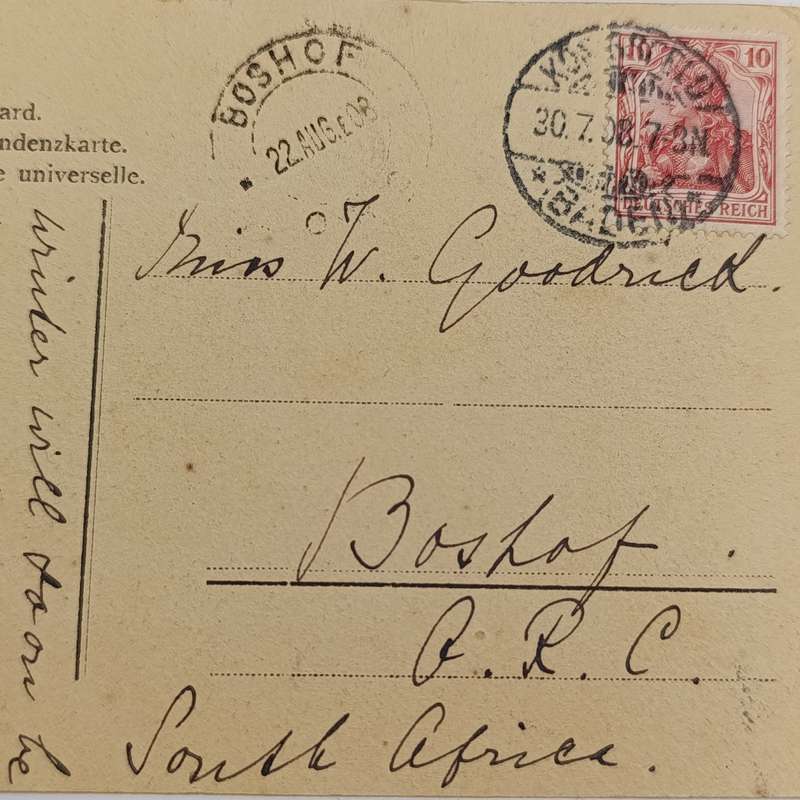 BOSHOF
22 AUG 08
30.7.08.7-8N.
*(BADEN)*
10
DEUTSCHES REICH
ard.
ndenzkarte.
e universelle.
Miss W. Goodrick.
Boshof.
O. R. C.
South Africa.
winter will soon be